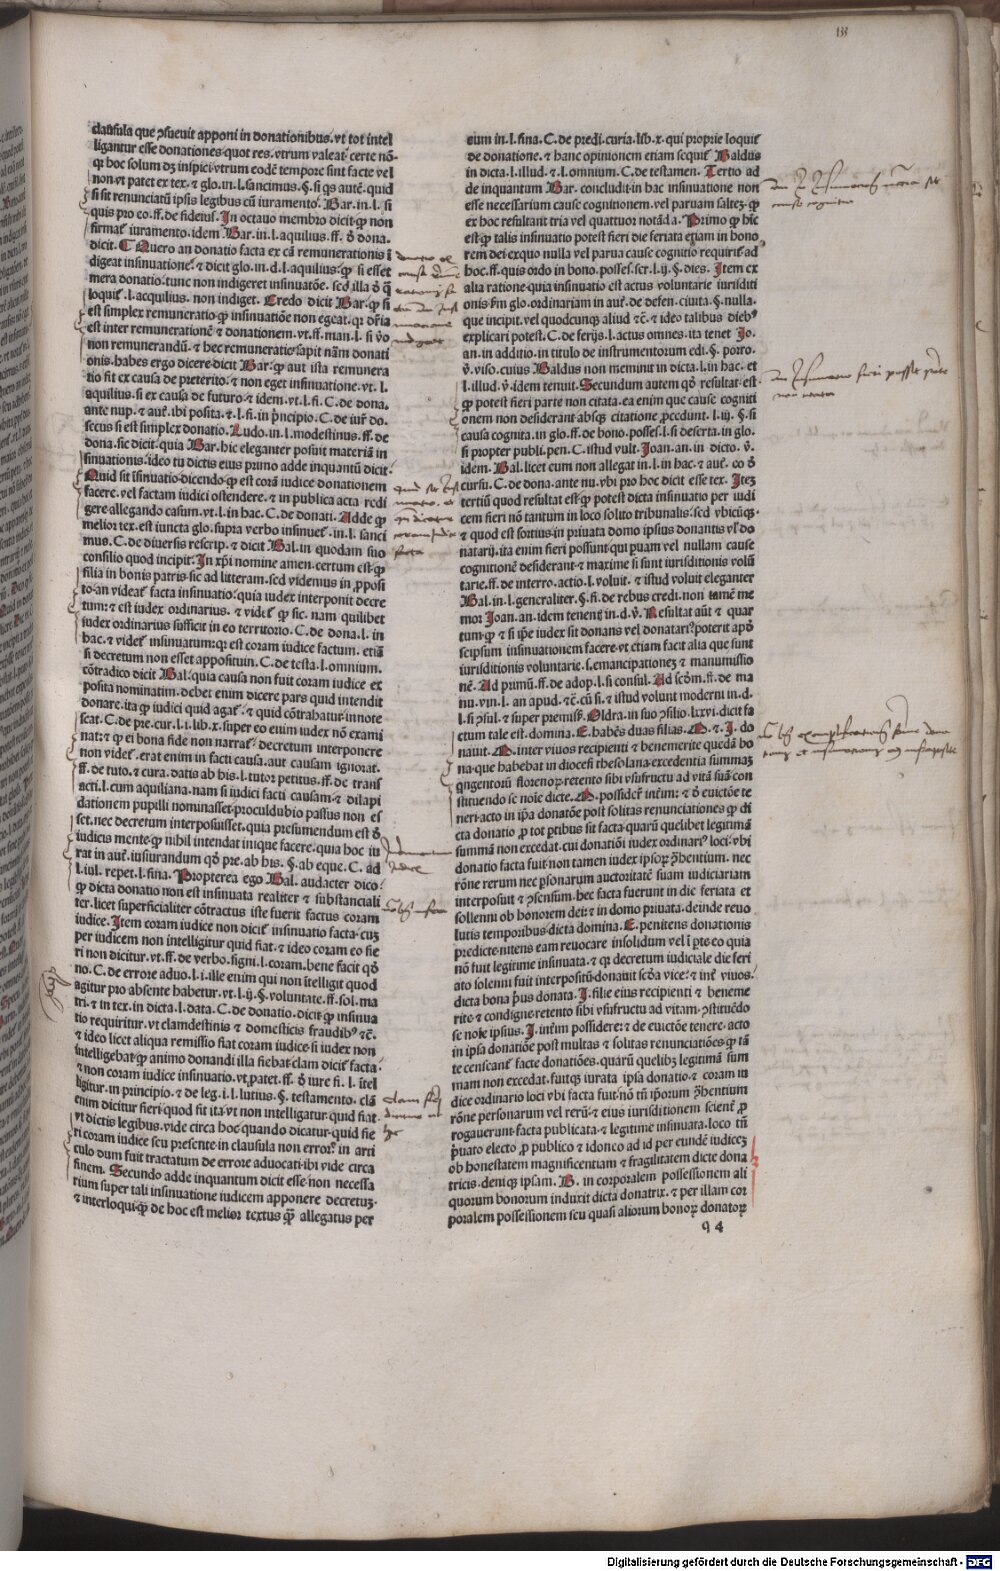 133
clausula que ꝯsueuit apponi in donationibus. vt tot intel
ligantur esse donationes quot res. vtrum valeat. certe nō.
qꝫ hoc solum dꝫ inspici vtrum eodē tempore sint facte vel
non vt patet ex tex. ⁊ glo. in. l. sancimus. §. si qs autē. quid
si sit renunciatū ipsis legibus cū iuramento. Bar. in. l. si
quis pro eo. ff. de fideius. In octauo membro dicit ꝙ non
firmat᷑ iuramento. idem Bar. in. l. aquilius. ff. ō dona.
dicit. ¶ Quero an donatio facta ex cā remunerationis ī
digeat insinuatione. ⁊ dicit glo. in. d. l. aquilius. ꝙ si esset
mera donatio. tunc non indigeret insinuatōe. sed illa ō q̄
loquit᷑. l. acquilius. non indiget. Credo dicit Bar. ꝙ si
est simplex remuneratio. ꝙ insinuatiōe non egeat. qꝛ dr̄ia
est inter remunerationē ⁊ donationem. vt. ff. man. l. si v̄o
non remunerandū. ⁊ hec remuneratio sapit nām donati
onis. habes ergo dicere dicit Bar. ꝙ aut ista remunera
tio fit ex causa de preterito. ⁊ non eget insinuatione. vt. l.
aquilius. si ex causa de futuro. ⁊ idem. vt. l. fi. C. de dona.
ante nup. ⁊ aut̄. ibi posita. ⁊ l. fi. in p̄ncipio. C. de iur̄. do.
secus si est simplex donatio. Ludo. in. l. modestinus. ff. de
dona. sic dicit. quia Bar. hic eleganter posuit materiā in
sinuationis. ideo tu dictis eius primo adde inquantū dicit.
Quid sit īsinuatio. dicendo. ꝙ est corā iudice donationem
facere. vel factam iudici ostendere. ⁊ in publica acta redi
gere allegando casum. vt. l. in hac. C. de donati. Adde ꝙ
melior tex. est iuncta glo. supra verbo insinuet᷑. in. l. sanci
mus. C. de diuersis rescrip. ⁊ dicit Bal. in quodam suo
consilio quod incipit. In xp̄i nomine amen. certum est ꝙ
filia in bonis patris. sic ad litteram. sed videmus in ꝓposi
to an videat᷑ facta insinuatio. quia iudex interponit decre
tum. ⁊ est iudex ordinarius. ⁊ videt᷑ ꝙ sic. nam quilibet
iudex ordinarius sufficit in eo territorio. C. de dona. l. in
hac. ⁊ videt᷑ insinuatum. qꝛ est coram iudice factum. etiā
si decretum non esset appositum. C. de testa. l. omnium.
cōtradico dicit Bal. quia causa non fuit coram iudice ex
posita nominatim. debet enim dicere pars quid intendit
donare. ita ꝙ iudici quid agat᷑. ⁊ quid cōtrahat᷑ innote
scat. C. de pre. cur. l. i. lib. x. super eo enim iudex nō exami
nat. ⁊ ꝙ ei bona fide non narrat᷑. decretum interponere
non videt᷑. erat enim in facti causa. aut causam ignorat.
ff. de tuto. ⁊ cura. datis ab his. l. tutor petitus. ff. de trans
acti. l. cum aquiliana. nam si iudici facti causam. ⁊ dilapi
dationem pupilli nominasset. proculdubio passus non es
set. nec decretum interposuisset. quia presumendum est ō
iudicis mente. ꝙ nihil intendat inique facere. quia hoc iu
rat in aut̄. iusiurandum qō pre. ab his. §. ab eque. C. ad
l. iul. repet. l. fina. Propterea ego Bal. audacter dico.
ꝙ dicta donatio non est insinuata realiter ⁊ substantiali
ter. licet superficialiter cōtractus iste fuerit factus coram
iudice. Item coram iudice non dicit᷑ insinuatio facta. cuꝫ
per iudicem non intelligitur quid fiat. ⁊ ideo coram eo fie
ri non dicitur. vt. ff. de verbo. signi. l. coram. bene facit qō
no. C. de errore aduo. l. i. ille enim qui non ītelligit quod
agitur pro absente habetur. vt. l. ij. §. voluntate. ff. sol. ma
tri. ⁊ in tex. in dicta. l. data. C. de donatio. dicit ꝙ insinua
tio requiritur. vt clamdestinis ⁊ domesticis fraudibꝰ ⁊c̄.
⁊ ideo licet aliqua remissio fiat coram iudice. si iudex non
intelligebat. ꝙ animo donandi illa fiebat. clam dicit᷑ facta.
⁊ non coram iudice insinuatio. vt patet. ff. ō iure fi. l. ītel
ligitur. in principio. ⁊ de leg. i. l. lutius. §. testamento. clā
enim dicitur fieri quod fit ita. vt non intelligatur. quid fiat.
vt dictis legibus. vide circa hoc quando dicatur. quid fie
ri coram iudice seu presente. in clausula non errorꝭ in arti
culo dum fuit tractatum de errore aduocati. ibi vide circa
finem. Secundo adde inquantum dicit esse non necessa
rium super tali insinuatione iudicem apponere decretuꝫ.
⁊ interloqui. ꝙ de hoc est melior textus qꝫ allegatus per
eium in. l. fina. C. de predi. curia. lib. x. qui proprie loquit᷑
de donatione. ⁊ hanc opinionem etiam sequit᷑ Baldus
in dicta. l. illud. ⁊. l. omnium. C. de testamen. Tertio ad
de inquantum Bar. concludit in hac insinuatione non
esse necessarium cause cognitionem. vel paruam saltez. ꝙ
ex hoc resultant tria vel quattuor notāda. Primo ꝙ hic
est ꝙ talis insinuatio potest fieri die feriata etiam in hono
rem dei ex quo nulla vel parua cause cognitio requirit᷑ ad
hoc. ff. quis ordo in bono. posses. ser. l. ij. §. dies. Item ex
alia ratione. quia insinuatio est actus voluntarie iurisditi
onis ẜm glo. ordinariam in aut̄. de defen. ciuita. §. nulla.
que incipit. vel quodcunqꝫ aliud ⁊c̄. ⁊ ideo talibus diebꝰ
explicari potest. C. de ferijs. l. actus omnes. ita tenet Jo.
an. in additio. in titulo de instrumentorum edi. §. porro.
v̄. viso. cuius Baldus non meminit in dicta. l. in hac. et
l. illud. v̄. idem tenuit. Secundum autem qō resultat. est.
ꝙ potest fieri parte non citata. ea enim que cause cogniti
onem non desiderant absqꝫ citatione ꝓcedunt. l. ij. §. si
causa cognita. in glo. ff. de bono. posses. l. si deserta. in glo.
si propter publi. pen. C. istud vult Joan. an. in dicto. v̄.
idem. Bal. licet eum non allegat in. l. in hac. ⁊ aut̄. eo ō
cursu. C. de dona. ante nu. vbi pro hoc dicit esse tex. Iteꝫ
tertiū quod resultat est. ꝙ potest dicta insinuatio per iudi
cem fieri nō tantum in loco solito tribunalis. sed vbicūqꝫ.
⁊ quod est fortius in priuata domo ipsius donantis vl̄ do
natarij. ita enim fieri possunt qui paruam vel nullam cause
cognitionē desiderant. ⁊ maxime si sunt iurisditionis volū
tarie. ff. de interro. actio. l. voluit. ⁊ istud voluit eleganter
Bal. in. l. generaliter. §. fi. de rebus credi. non tamē me
mor Joan. an. idem tenentꝭ in. d. v̄. Resultat aūt ⁊ quar
tum. ꝙ ⁊ si ip̄e iudex sit donans vel donatariꝰ. poterit apō
seipsum insinuationem facere. vt etiam facit alia que sunt
iurisditionis voluntarie. s. emancipationeꝫ ⁊ manumissio
nē. Ad primū. ff. de adop. l. si consul. Ad scōm. ff. de ma
nu. vin. l. an apud. ⁊c̄. cū si. ⁊ istud volunt moderni in. d.
l. si ꝯsul. ⁊ super premissꝭ. Oldra. in suo ꝯsilio. lxxvi. dicit fa
ctum tale est. domina. E. habēs duas filias. M. ⁊. J. do
nauit. M. inter viuos recipienti ⁊ benemerite quedā bo
na. que habebat in diocesi thesolana. excedentia summaꝫ
qngentorū florenorꝫ. retento sibi vsufructu ad vitā suā con
stituendo se noīe dicte. M. possider̄ interī. ⁊ ō euictōe te
neri. acto in ip̄a donatōe post solitas renunciationes ꝙ di
cta donatio ꝓ tot ꝑtibus sit facta. quarū quelibet legitimā
summā non excedat. cui donatiōi iudex ordinariꝰ loci. vbi
donatio facta fuit. non tamen iudex ipsorꝫ ꝯhentium. nec
rōne rerum nec ꝑsonarum auctoritatē suam iudiciariam
interposuit ⁊ ꝯsensum. hec facta fuerunt in die feriata et
sollenni ob honorem dei. ⁊ in domo priuata. deinde reuo
lutis temporibus dicta domina. E. penitens donationis
predicte. nitens eam reuocare insolidum vel ī ꝑte. eo quia
nō fuit legitime insinuata. ⁊ qꝛ decretum iudiciale die feri
ato solenni fuit interpositū. donauit scōa vice. ⁊ int̄ viuos.
dicta bona pꝰus donata. J. filie eius recipienti ⁊ beneme
rite ⁊ condigne. retento sibi vsufructu ad vitam. ꝯstituēdo
se noīe ipsius. J. interī possidere. ⁊ de euictōe tenere. acto
in ipsa donatiōe post multas ⁊ solitas renunciatiōes. ꝙ tā
te censeant᷑ facte donatiōes. quarū quelibꝫ legitimā sum
mam non excedat. fuitqꝫ iurata ipsa donatio. ⁊ coram iu
dice ordinario loci vbi facta fuit. nō tn̄ ip̄orum ꝯhentium
rōne personarum vel rerū. ⁊ eius iurisditionem scient᷑ ꝓ
rogauerunt. facta publicata. ⁊ legitime insinuata. loco tn̄
p̄uato electo ꝓ publico ⁊ idoneo ad id per eundē iudiceꝫ
ob honestatem magnificentiam ⁊ fragilitatem dicte dona
tricis. deniqꝫ ipsam. B. in corporalem possessionem ali
quorum bonorum induxit dicta donatrix. ⁊ per illam cor
poralem possessionem seu quasi aliorum bonorꝫ donatorꝫ
q 4
Digitalisierung gefördert durch die Deutsche Forschungsgemeinschaft - DFG